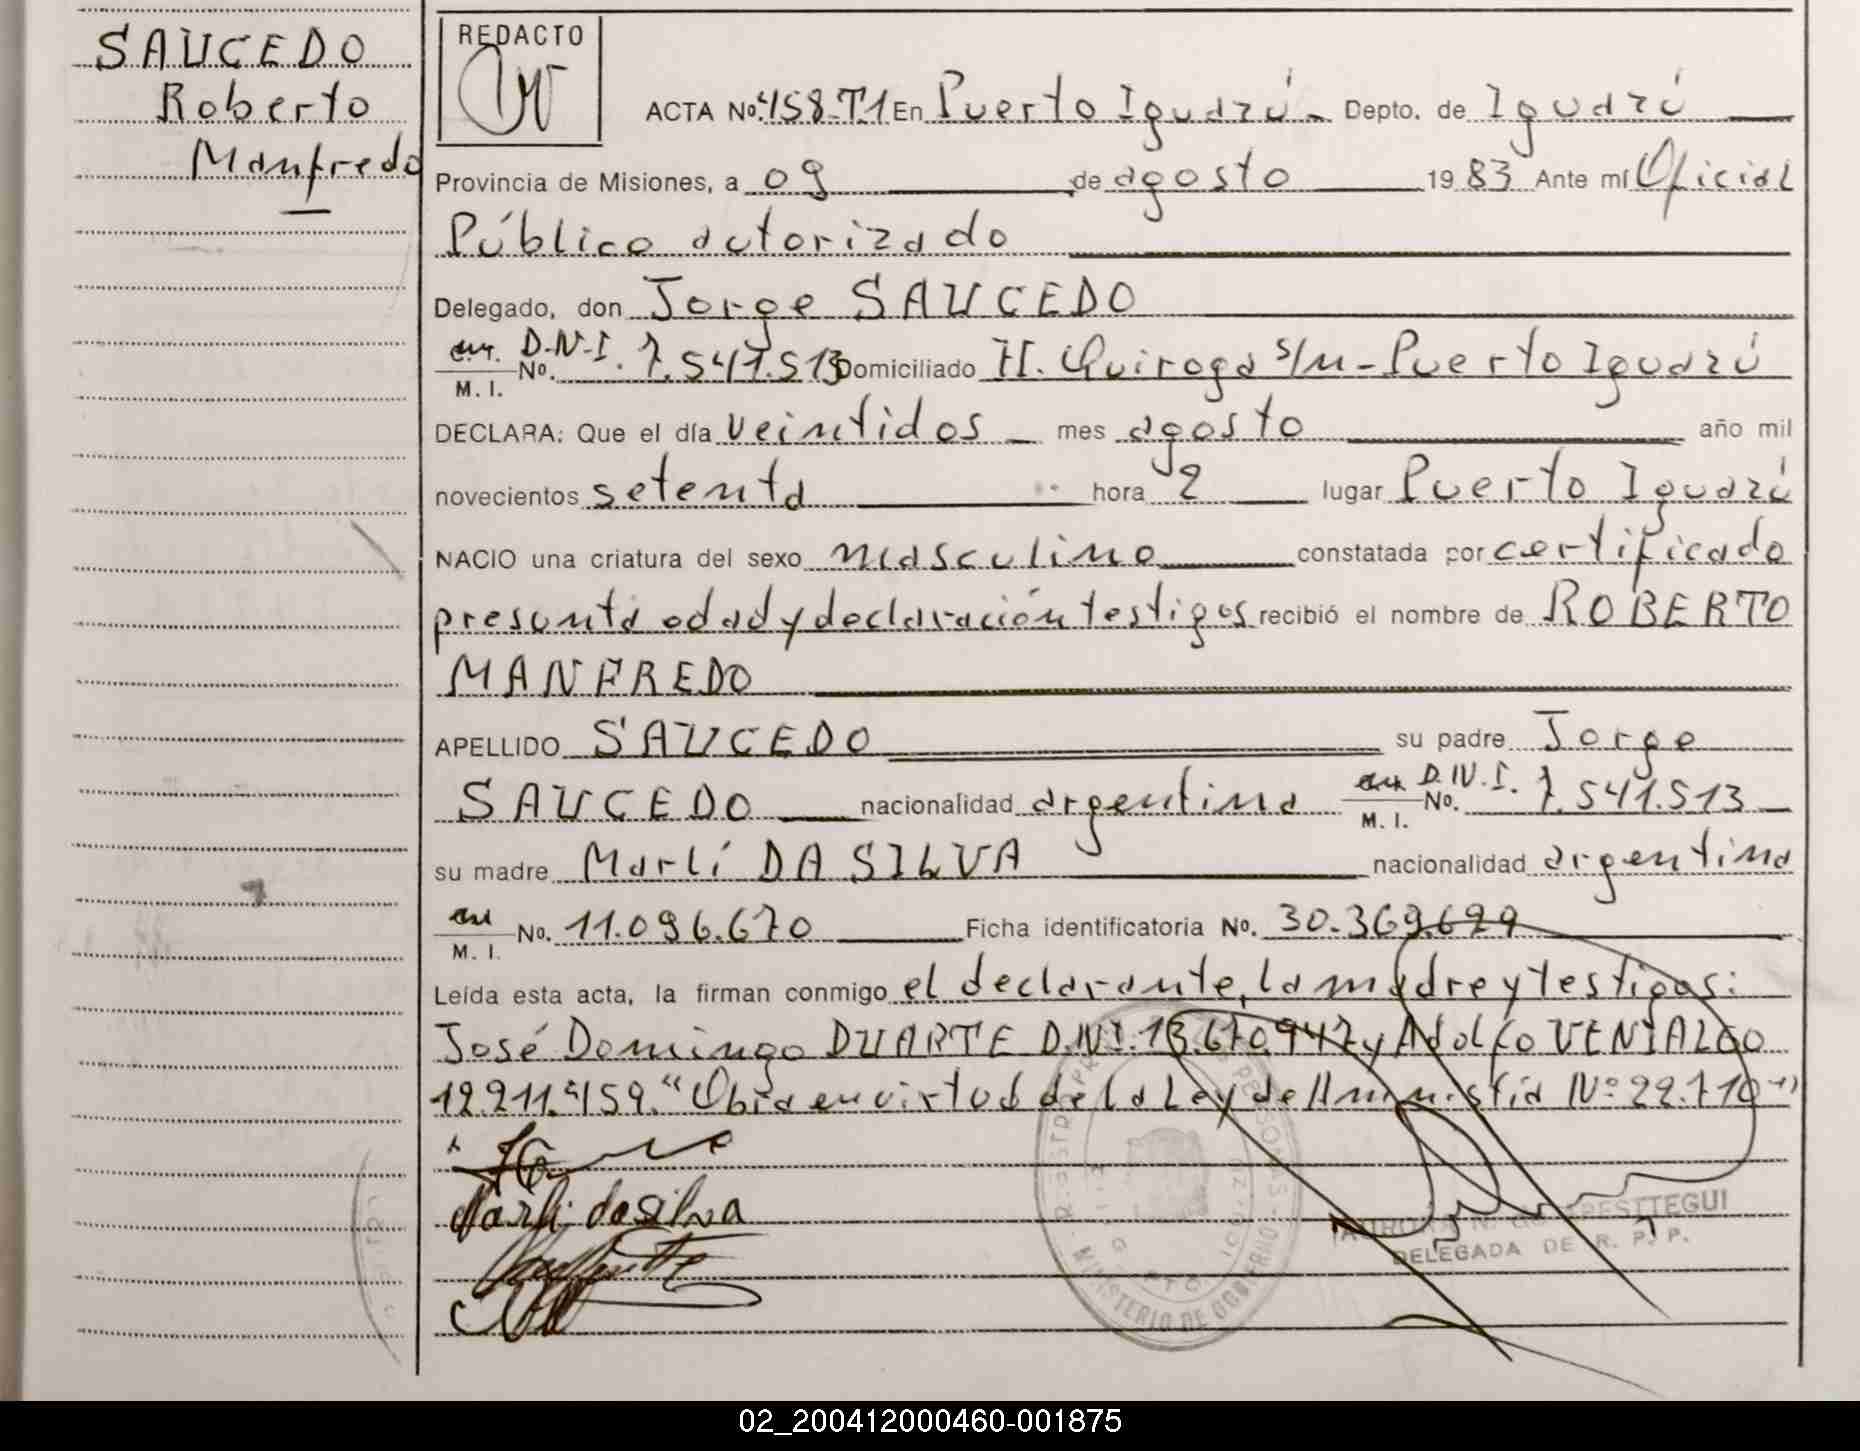 SAUCEDO
Roberto
Manfredo
REDACTO
ACTA No. 458-T1 En Puerto Iguazú Depto. de Iguazú
Provincia de Misiones, a 09 de agosto 1983 Ante mí Oficial
Público autorizado
Delegado, don Jorge SAUCEDO
M. I. No. D.N.I. 7.541.513 Domiciliado H. Quiroga s/n - Puerto Iguazú
DECLARA: Que el día veintidos mes agosto año mil
novecientos setenta hora 2 lugar Puerto Iguazú
NACIO una criatura del sexo masculino constatada por certificado
presunta edad y declaración testigos recibió el nombre de ROBERTO
MANFREDO
APELLIDO SAUCEDO su padre Jorge
SAUCEDO nacionalidad argentina M. I. No. D.N.I. 7.541.513
su madre Marlí DA SILVA nacionalidad argentina
M. I. No. 11.096.670 Ficha identificatoria No. 30.369.629
Leída esta acta, la firman conmigo el declarante, la madre y testigos:
José Domingo DUARTE D.N.I. 13.670.947 y Adolfo VENIALGO
12.211.459. "Obra en virtud de la Ley de Amnistía Nº 22.710"
Marli da silva
MINISTERIO DE GOBIERNO
DELEGADA DE R. P. P.
02_200412000460-001875